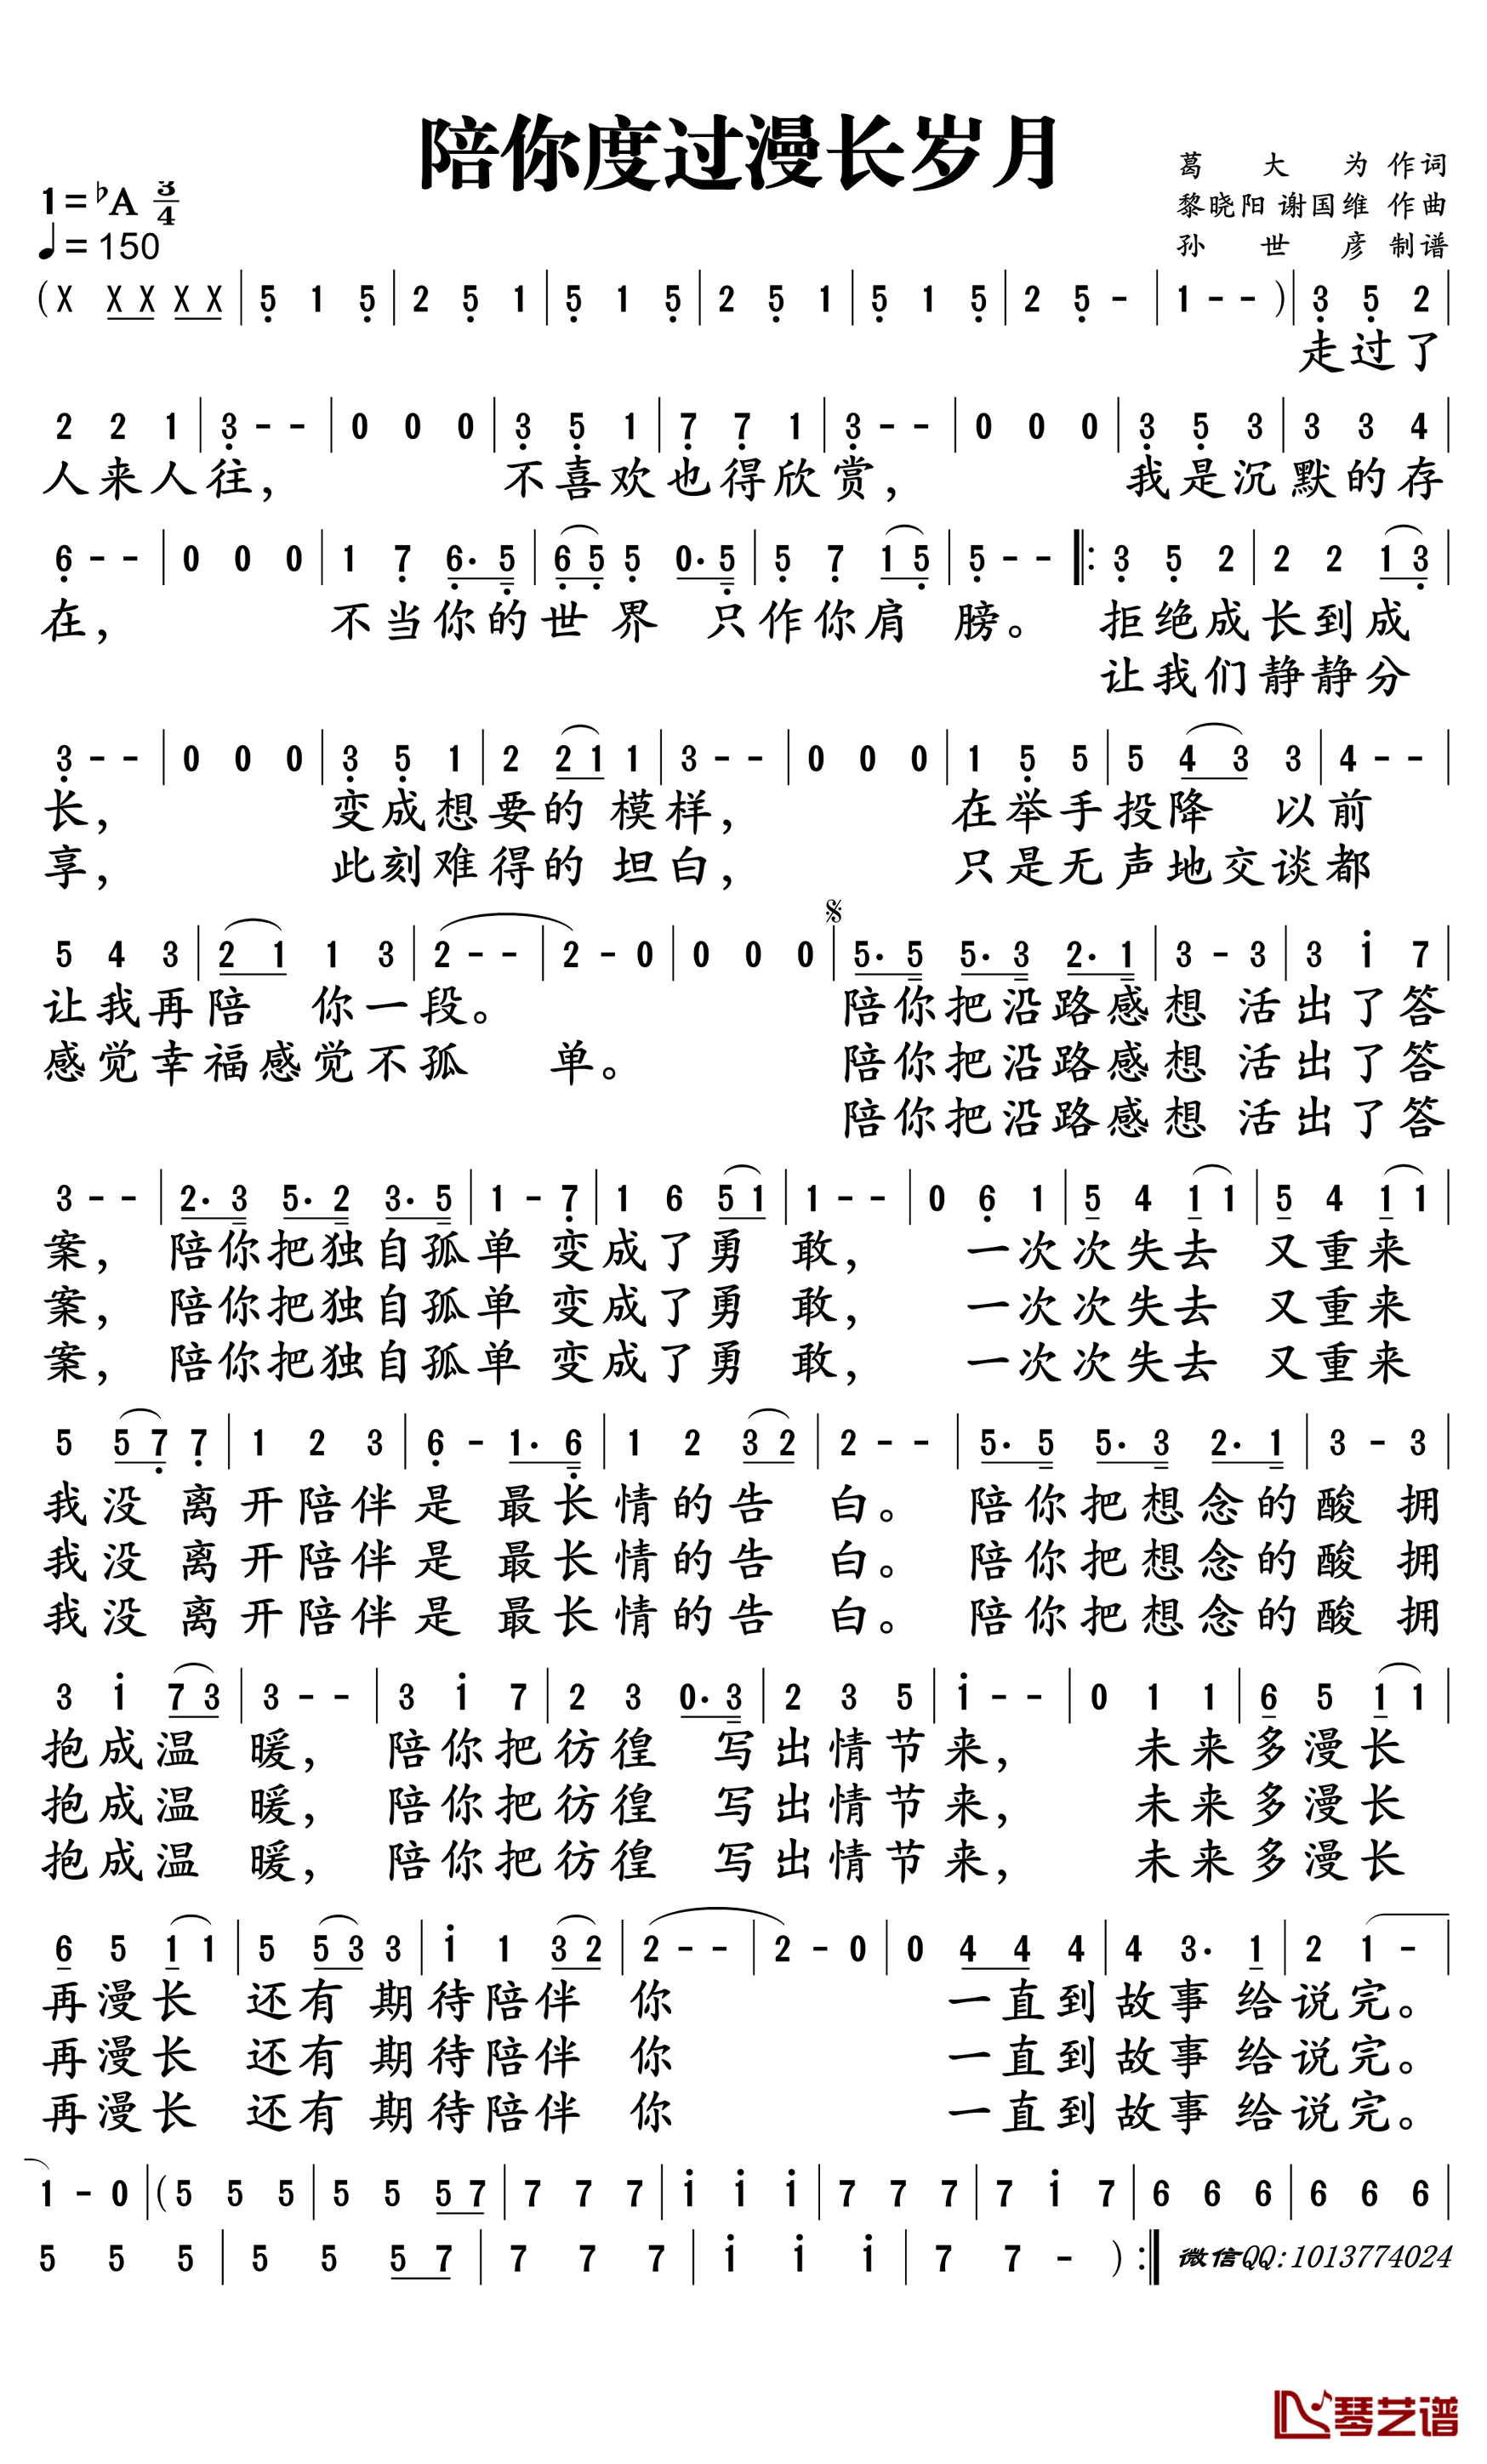 陪你度过漫长岁月
葛 大 为 作词
1=♭A 3/4
黎晓阳 谢国维 作曲
♩=150
孙 世 彦 制谱
(X X X X X | 5̣ 1 5̣ | 2 5̣ 1 | 5̣ 1 5̣ | 2 5̣ 1 | 5̣ 1 5̣ | 2 5̣ - | 1 - - ) | 3̣ 5̣ 2 |
走过了
2 2 1 | 3̣ - - | 0 0 0 | 3̣ 5̣ 1 | 7̣ 7̣ 1 | 3̣ - - | 0 0 0 | 3̣ 5̣ 3 | 3 3 4 |
人来人往， 不喜欢也得欣赏， 我是沉默的存
6̣ - - | 0 0 0 | 1 7̣ 6̣. 5̣ | 6̣ 5̣ 5̣ 0. 5̣ | 5̣ 7̣ 1 5̣ | 5̣ - - |: 3̣ 5̣ 2 | 2 2 1 3̣ |
在， 不当你的世界 只作你肩 膀。 拒绝成长到成
让我们静静分
3̣ - - | 0 0 0 | 3̣ 5̣ 1 | 2 2 1 1 | 3 - - | 0 0 0 | 1 5̣ 5 | 5 4 3 3 | 4 - - |
长， 变成想要的 模样， 在举手投降 以前
享， 此刻难得的 坦白， 只是无声地交谈都
𝄋
5 4 3 | 2 1 1 3 | 2 - - | 2 - 0 | 0 0 0 | 5. 5 5. 3 2. 1 | 3 - 3 | 3 1̇ 7 |
让我再陪 你一段。 陪你把沿路感想 活出了答
感觉幸福感觉不孤 单。 陪你把沿路感想 活出了答
陪你把沿路感想 活出了答
3 - - | 2. 3 5. 2 3. 5 | 1 - 7̣ | 1 6 5 1 | 1 - - | 0 6̣ 1 | 5 4 1 1 | 5 4 1 1 |
案， 陪你把独自孤单 变成了勇 敢， 一次次失去 又重来
案， 陪你把独自孤单 变成了勇 敢， 一次次失去 又重来
案， 陪你把独自孤单 变成了勇 敢， 一次次失去 又重来
5 5 7̣ 7̣ | 1 2 3 | 6̣ - 1. 6̣ | 1 2 3 2 | 2 - - | 5. 5 5. 3 2. 1 | 3 - 3 |
我没 离开陪伴是 最长情的告 白。 陪你把想念的酸 拥
我没 离开陪伴是 最长情的告 白。 陪你把想念的酸 拥
我没 离开陪伴是 最长情的告 白。 陪你把想念的酸 拥
3 1̇ 7 3 | 3 - - | 3 1̇ 7 | 2 3 0. 3 | 2 3 5 | 1̇ - - | 0 1 1 | 6 5 1 1 |
抱成温 暖， 陪你把彷徨 写出情节来， 未来多漫长
抱成温 暖， 陪你把彷徨 写出情节来， 未来多漫长
抱成温 暖， 陪你把彷徨 写出情节来， 未来多漫长
6 5 1 1 | 5 5 3 3 | 1̇ 1 3 2 | 2 - - | 2 - 0 | 0 4 4 4 | 4 3. 1 | 2 1 - |
再漫长 还有 期待陪伴 你 一直到故事 给说完。
再漫长 还有 期待陪伴 你 一直到故事 给说完。
再漫长 还有 期待陪伴 你 一直到故事 给说完。
1 - 0 | (5 5 5 | 5 5 5 7 | 7 7 7 | 1̇ 1̇ 1̇ | 7 7 7 | 7 1̇ 7 | 6 6 6 | 6 6 6 |
5 5 5 | 5 5 5 7 | 7 7 7 | 1̇ 1̇ 1̇ | 7 7 - ) :| 微信QQ:1013774024
琴艺谱